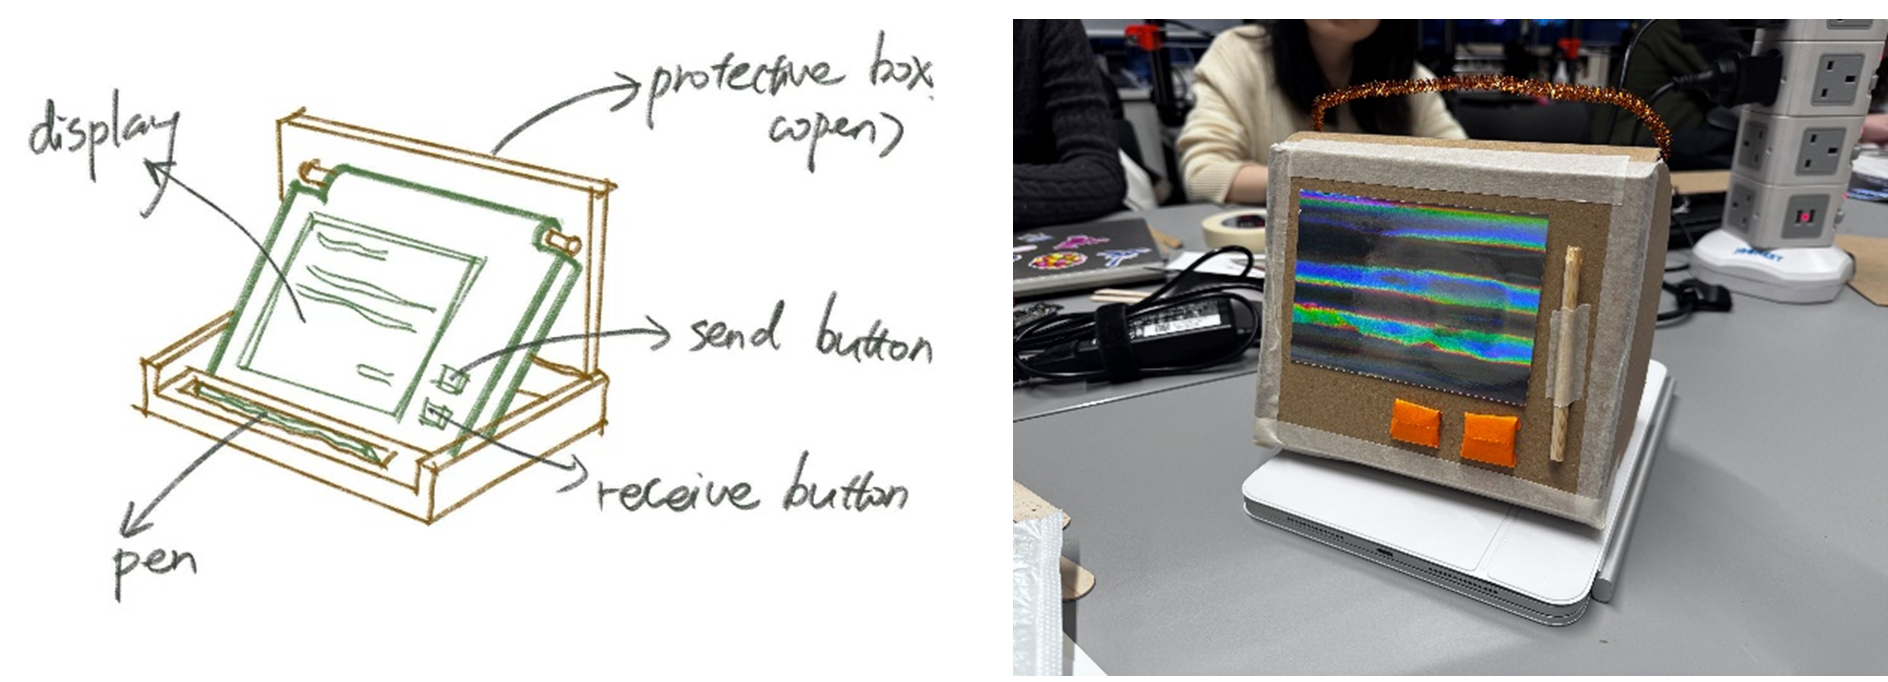 protective box
(open)
display
send button
receive button
pen